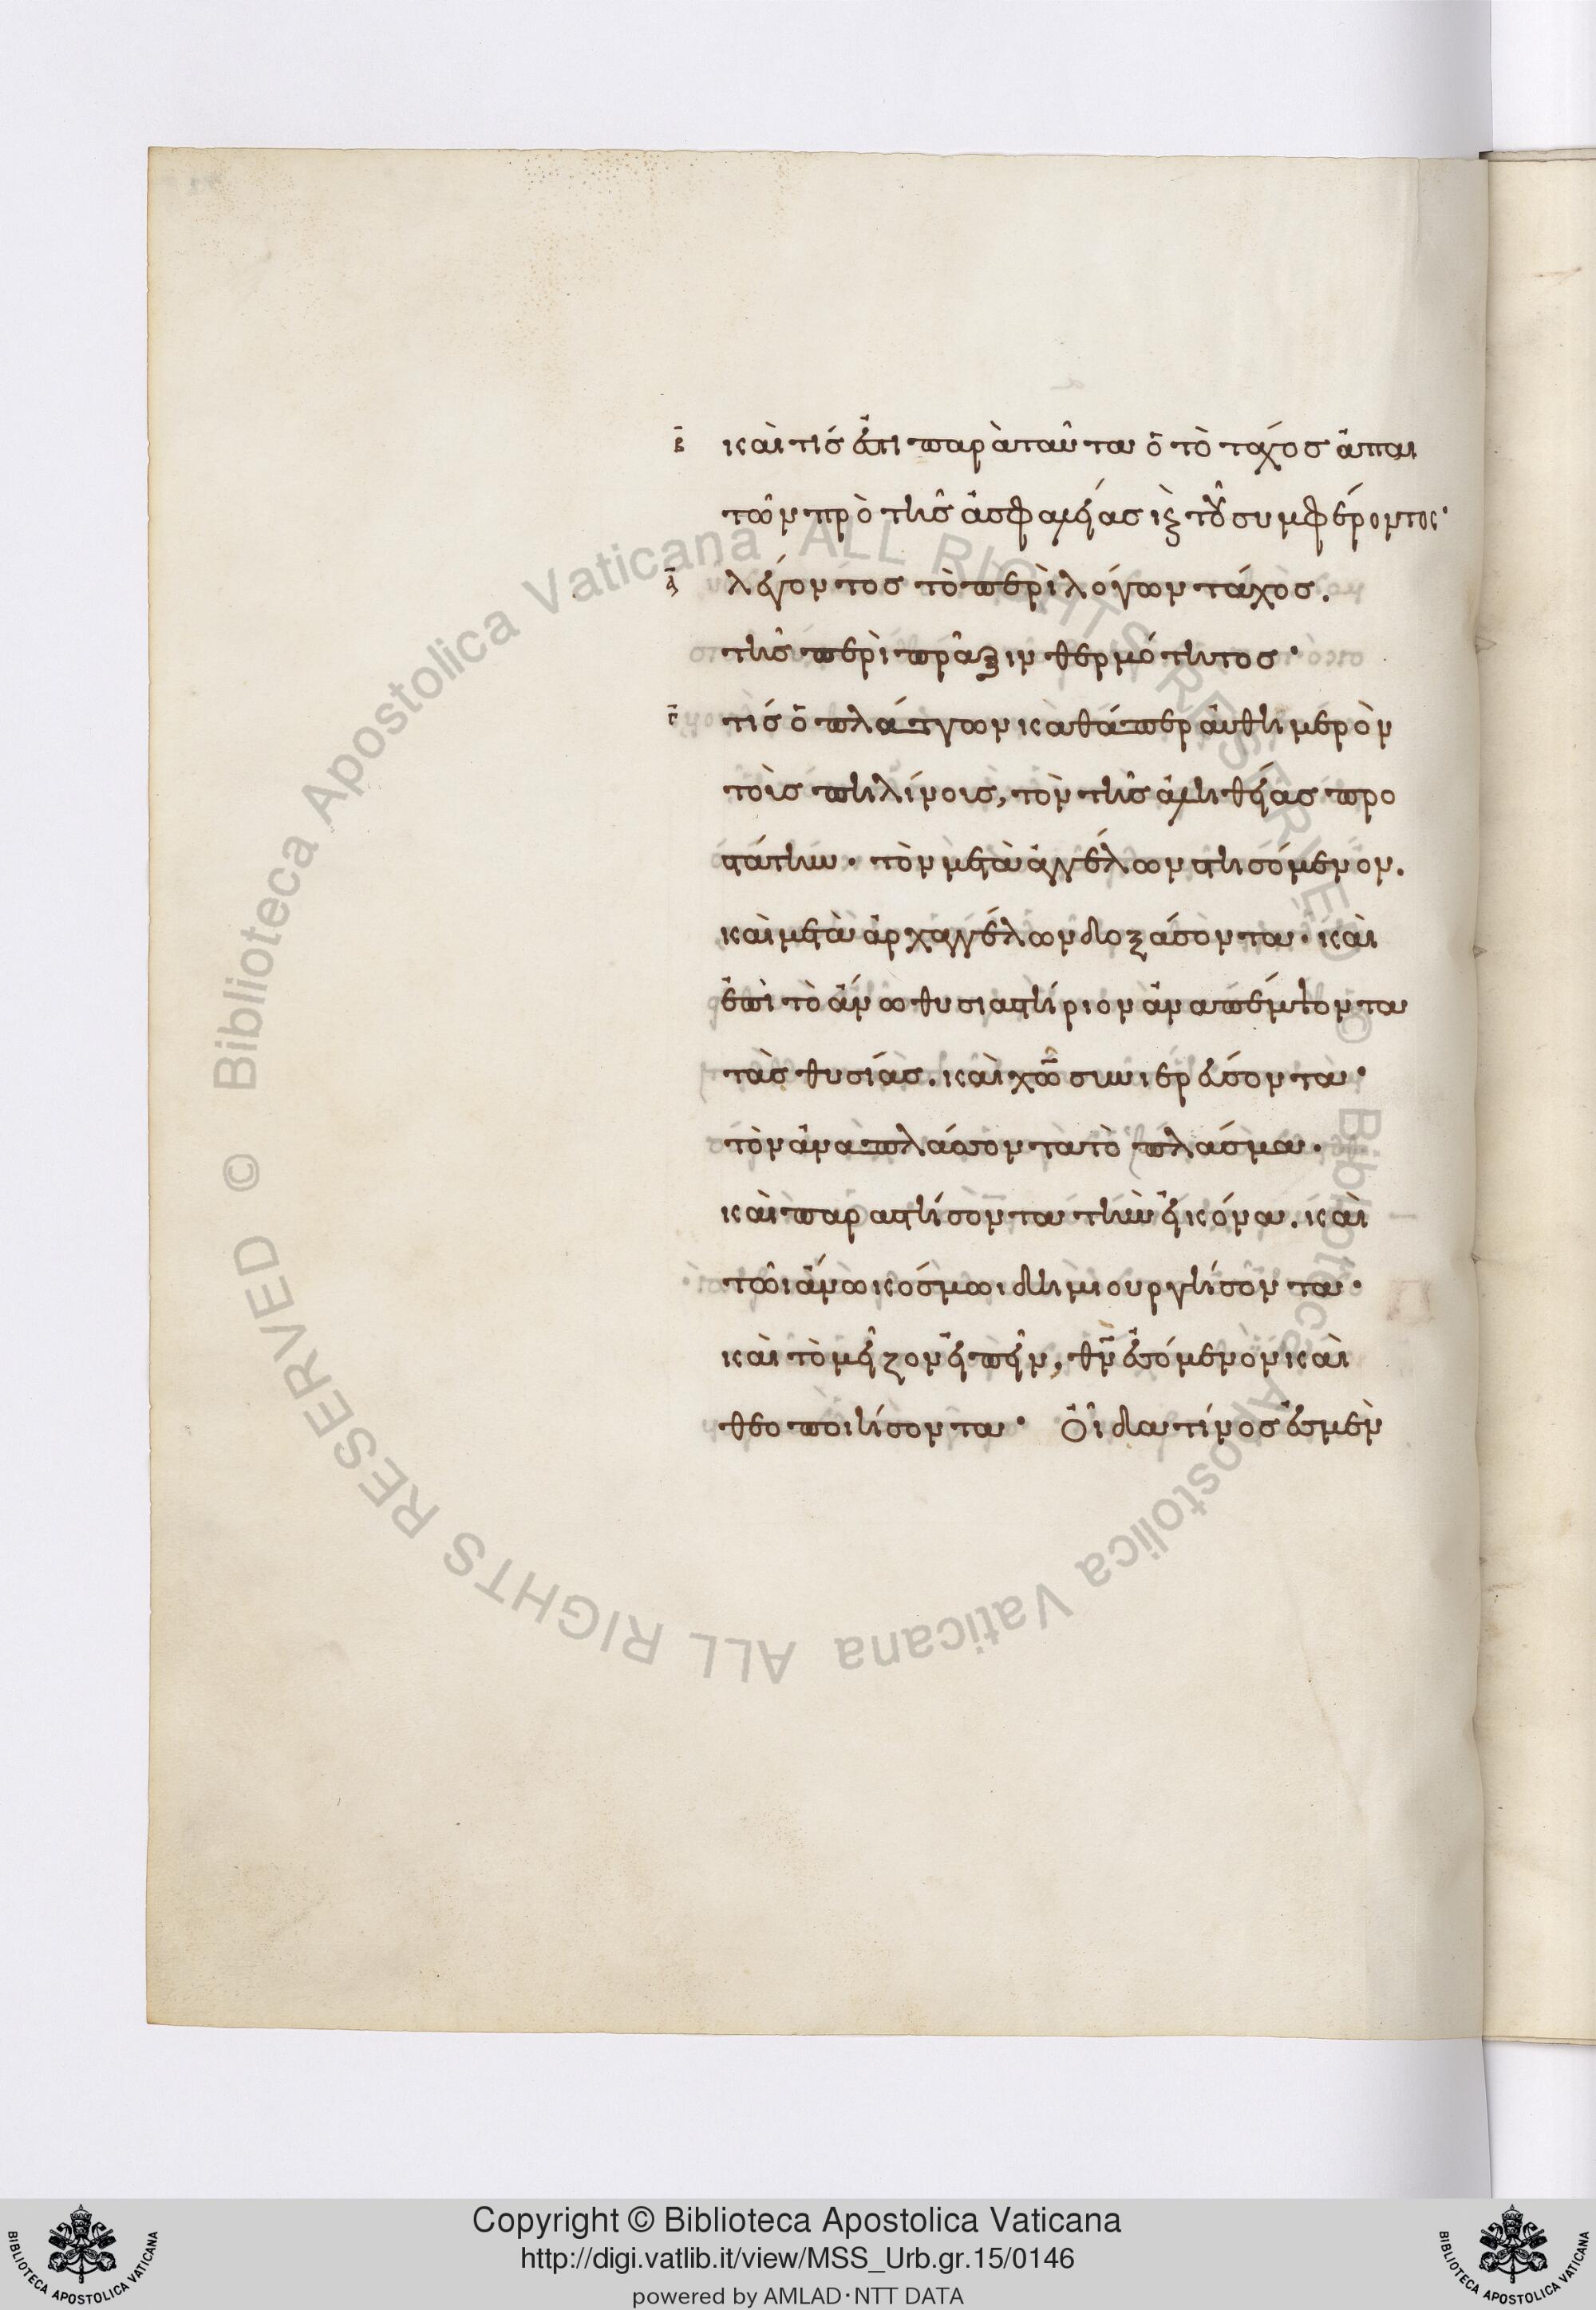 β̄ καὶ τίς ἐπι παρὰ ταῦτα ὁ τὸ τάχος ἅπαι
τῶν πρὸ τῆς ἀσφαλείας κ τοῦ συμφέροντος·
ᾱ λέγοντος τὸ περὶ λόγων τάχος.
τῆς περὶ πρᾶξιν θερμότητος·
γ̄ τίς ὁ πλάττων καθάπερ αὐθημερὸν
τοῖς πηλίνοις, τὸν τῆς ἀληθείας προ
στάτην· τὸν μετὰ ἀγγέλων στησόμενον.
καὶ μετὰ ἀρχαγγέλων δοξάσοντα· καὶ
ἐπὶ τὸ ἄνω θυσιαστήριον ἀναπέμψοντα
τὰς θυσίας. καὶ χ̅ω̅ συνιερεύσοντα·
τὸν ἀναπλάσσοντα τὸ πλάσμα.
καὶ παραστήσοντα τὴν εἰκόνα. καὶ
τῶι ἄνω κόσμωι δημιουργήσοντα·
καὶ τὸ μεῖζον εἰπεῖν, θ̅ν̅ ἐσόμενον καὶ
θεοποιήσοντα· Οἶδα τίνος ἐσμὲν
Copyright © Biblioteca Apostolica Vaticana
http://digi.vatlib.it/view/MSS_Urb.gr.15/0146
powered by AMLAD·NTT DATA
BIBLIOTECA APOSTOLICA VATICANA
BIBLIOTECA APOSTOLICA VATICANA
© Biblioteca Apostolica Vaticana ALL RIGHTS RESERVED © Biblioteca Apostolica Vaticana ALL RIGHTS RESERVED